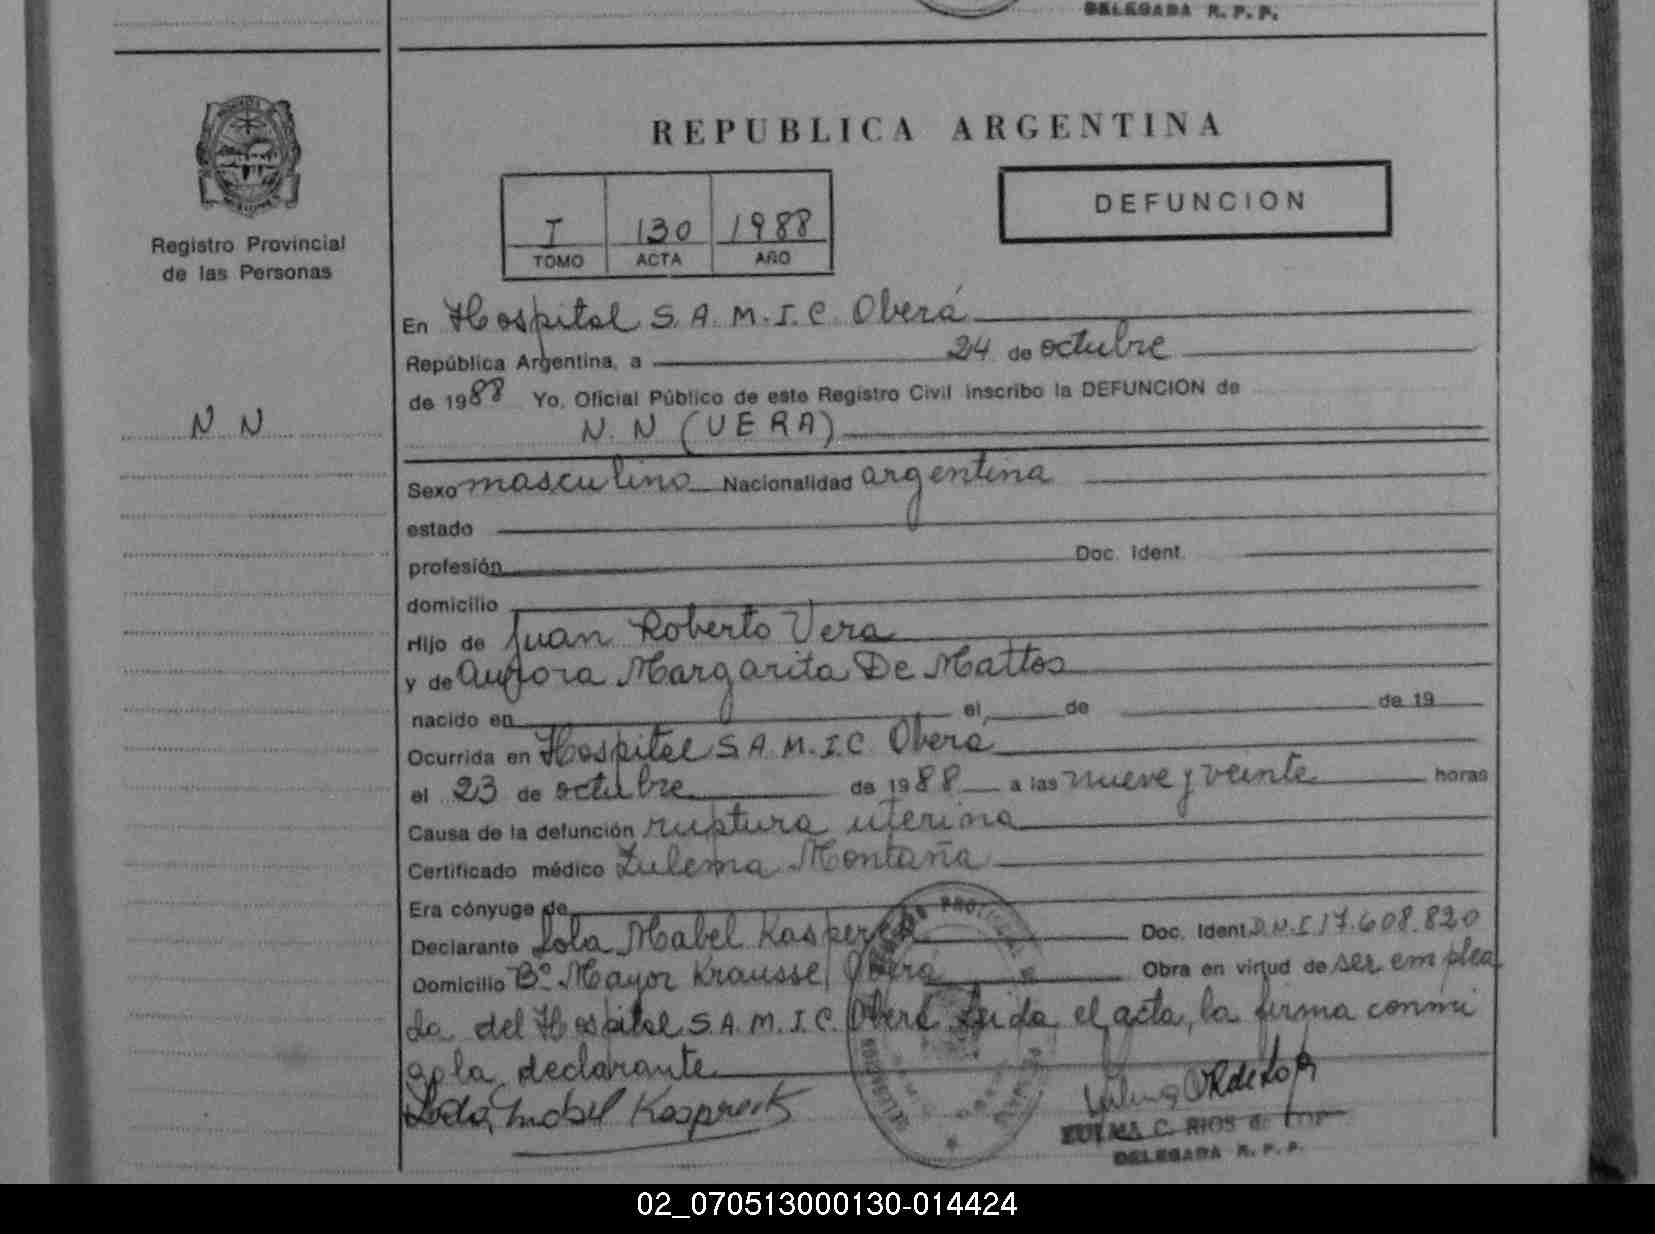 DELEGADA R. P. P.
REPUBLICA ARGENTINA
DEFUNCION
I 130 1988
TOMO ACTA AÑO
Registro Provincial
de las Personas
En Hospital S.A.M.I.C. Oberá
República Argentina, a 24 de octubre
de 1988 Yo, Oficial Público de este Registro Civil inscribo la DEFUNCION de
N N
N. N (VERA)
Sexo masculino Nacionalidad argentina
estado
profesión Doc. Ident.
domicilio
Hijo de Juan Roberto Vera
y de Aurora Margarita De Mattos
nacido en el de de 19
Ocurrida en Hospital S.A.M.I.C. Oberá
el 23 de octubre de 1988 a las nueve y veinte horas
Causa de la defunción ruptura uterina
Certificado médico Zulema Montaña
Era cónyuge de
Declarante Lola Mabel Doc. Ident. D.N.I 17.608.820
Domicilio Bº Mayor Krausse, Oberá Obra en virtud de ser emplea
da del Hospital S.A.M.I.C. Oberá Leida el acta, la firma conmi
go la declarante
Mabel
C. RIOS de
DELEGADA R. P. P.
02_070513000130-014424